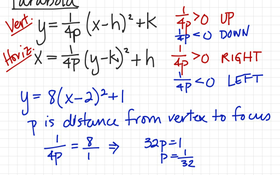 Parabola
Vert: y = 1/4p (x-h)² + K   1/4p > 0 UP
1/4p < 0 DOWN
Horiz: x = 1/4p (y-k)² + h   1/4p > 0 RIGHT
1/4p < 0 LEFT
y = 8(x-2)² + 1
p is distance from vertex to focus
1/4p = 8/1 ⇒ 32p = 1
p = 1/32